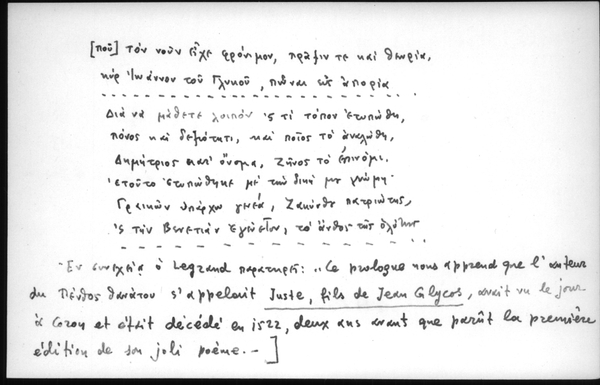 [ποῦ] τὸν νοῦν εἶχε φρόνιμον, πρᾶξιν τε καὶ θεωρία,
κὺρ Ἰωάννου τοῦ Γλυκοῦ, ποῦναι εἰς ἀπορία
Διὰ νὰ μάθετε λοιπόν 'ς τί τόπον ἐτυπώθη,
πόνος καὶ δεξιότητι, καὶ ποῖος τὸ ἀναλώθη,
Δημήτριος κατ' ὄνομα, Ζῆνος τὸ ἐπινόμι.
'ετοῦτο ἐτυπώθηκε μὲ τὴν δική μου γνώμη·
Γραικῶν ὑπάρχω γενεά, Ζακύνθου πατριώτης,
'ς τὴν Βενετιὰν τὸ ἄνθος τῆς
Ἐν συνεχείᾳ ὁ Legrand παρατηρεῖ: „Ce prologue nous apprend que l'auteur
du Πένθος θανάτου s'appelait Juste, fils de Jean Glycos, avait vu le jour
à Coron et était décédé en 1522, deux ans avant que parût la première
édition de son joli poème.—]